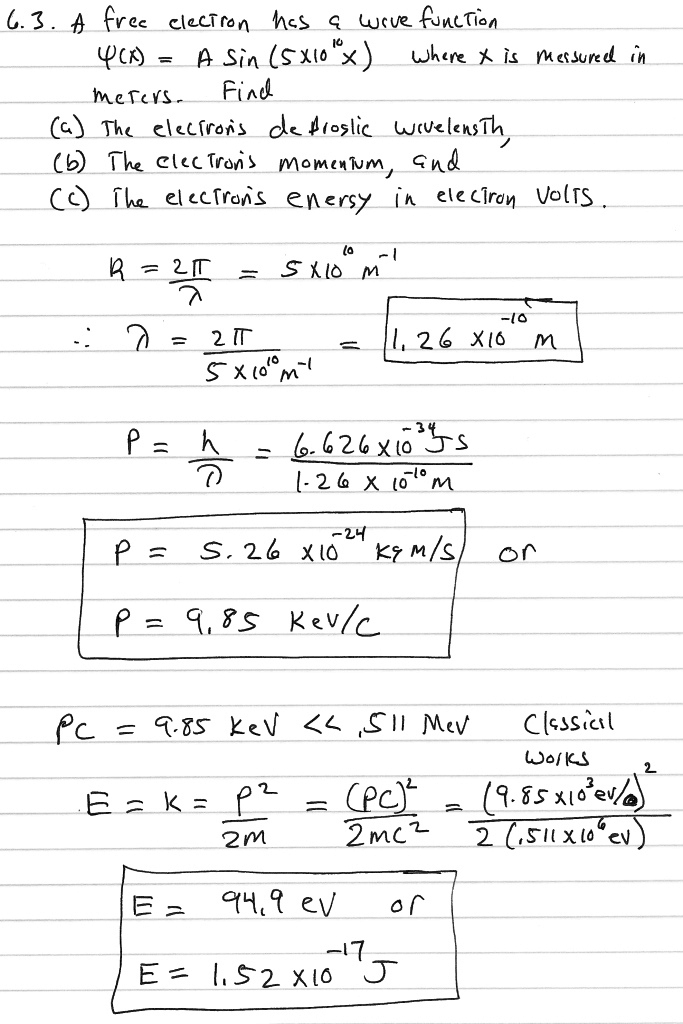 6.3. A free electron has a wave function
Ψ(x) = A Sin (5x10¹⁰x) where x is measured in
meters. Find
(a) The electron's de Broglie wavelength,
(b) The electron's momentum, and
(c) The electron's energy in electron volts.
k = 2π/λ = 5x10¹⁰ m⁻¹
∴ λ = 2π/(5x10¹⁰ m⁻¹) = 1.26 x10⁻¹⁰ m
P = h/λ = 6.626x10⁻³⁴ JS/(1.26 x 10⁻¹⁰ m)
P = 5.26 x10⁻²⁴ kg m/s or
P = 9.85 Kev/c
PC = 9.85 keV << .511 Mev Classical
works
E = K = P²/2m = (PC)²/2mc² = (9.85x10³ev)²/2(.511x10⁶ev)
E = 94.9 ev or
E = 1.52 x10⁻¹⁷ J